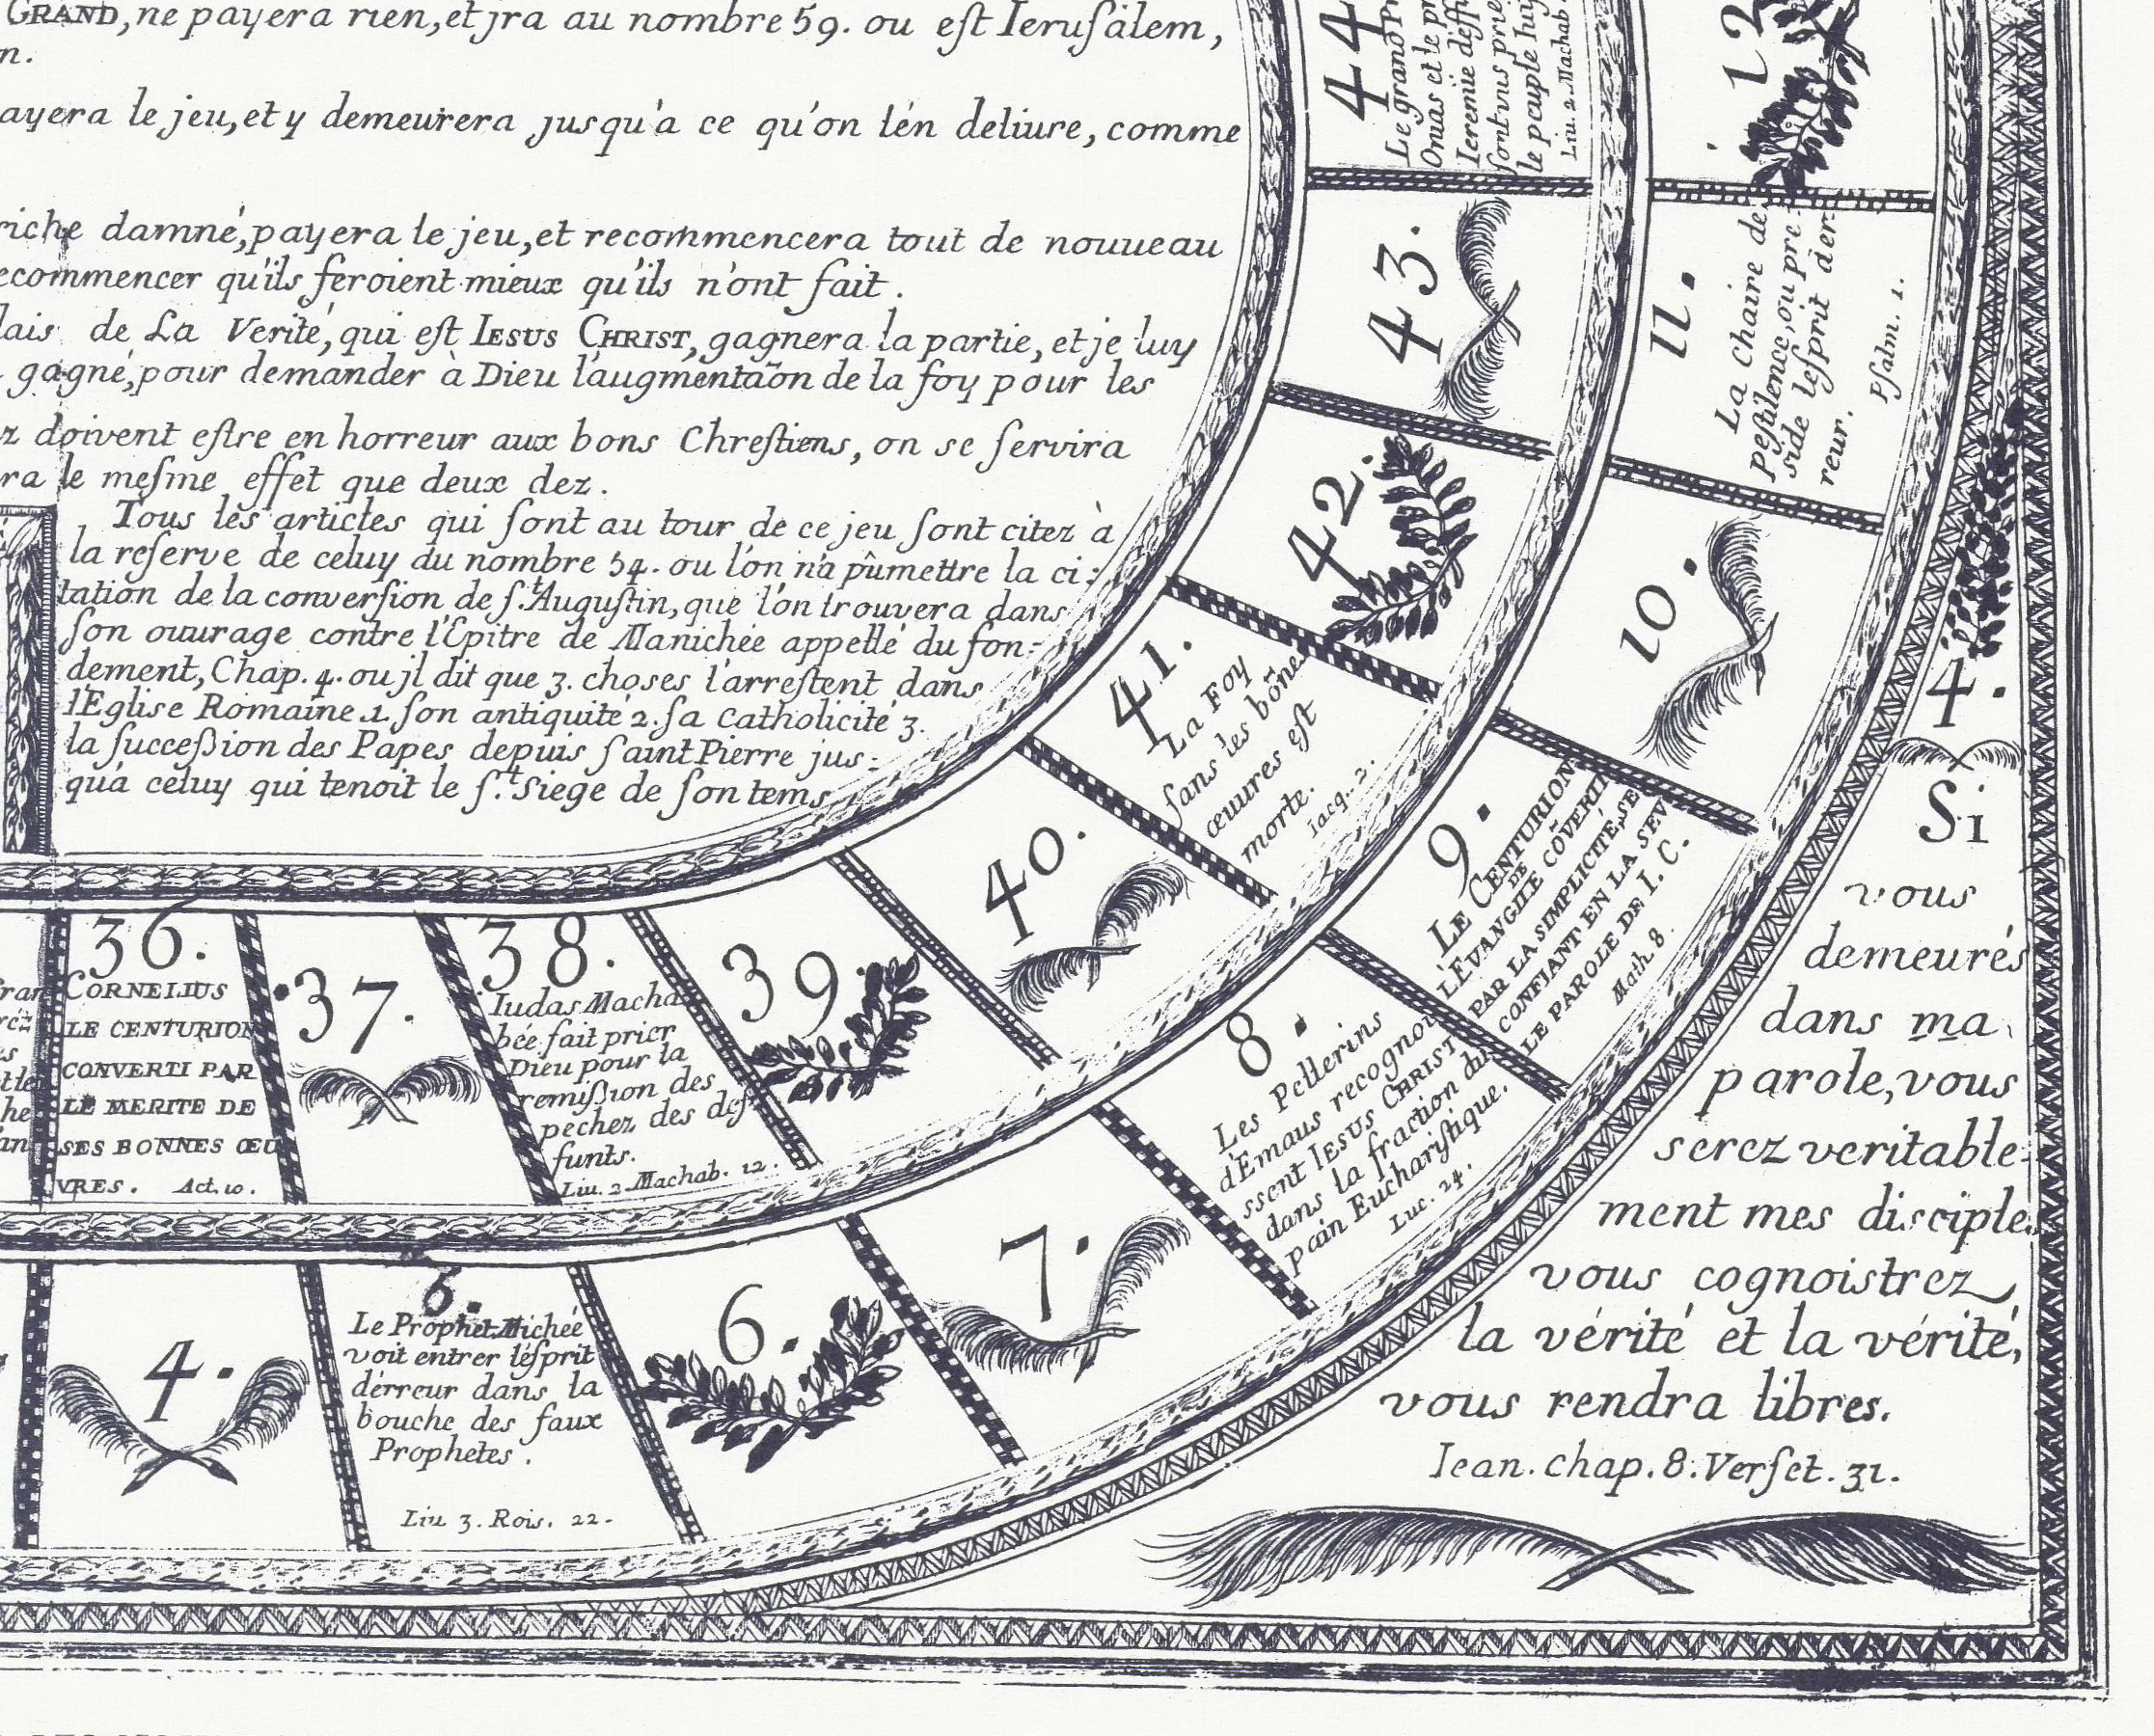 GRAND, ne payera rien, et jra au nombre 59. ou eſt Ieruſalem,
n.
ayera le jeu, et y demeurera jusqu'à ce qu'on l'én deliure, comme
riche damné, payera le jeu, et recommencera tout de nouueau
ecommencer qu'ils feroient mieux qu'ils n'ont fait.
lais de La Verité, qui eſt IESUS CHRIST, gagnera la partie, et je luy
gagné, pour demander à Dieu l'augmentaõn de la foy pour les
z doivent eſtre en horreur aux bons Chreſtiens, on se ſervira
ra le meſme effet que deux dez.
Tous les articles qui ſont au tour de ce jeu ſont citez à
la reſerve de celuy du nombre 54. ou l'on n'a pû mettre la ci:
tation de la converſion de ſ.t Auguſtin, que l'on trouvera dans
ſon ouurage contre l'Epitre de Manichée appellé du fon:
dement, Chap. 4. ou jl dit que 3. choses l'arreſtent dans
l'Egliſe Romaine 1. ſon antiquité 2. ſa Catholicité 3.
la ſucceßion des Papes depuis ſaint Pierre jus:
qu'à celuy qui tenoit le ſ.t Siege de ſon tems
44
Le grand
Onias et le
Ieremie
ſont vus
le peuple
Liu. 2. Machab.
43.
42.
41.
La Foy
ſans les bõnes
œuures eſt
morte.
Iacq. 2.
40.
39.
38.
Iudas Macha
bée fait prier
Dieu pour la
remißion des
pechez des def
funts.
Liu. 2 Machab. 12.
37.
36.
CORNELIUS
LE CENTURION
CONVERTI PAR
LE MERITE DE
SES BONNES ŒU
VRES. Act. 10.
12
11.
La Chaire de
peſtilence, ou pre
side l'eſprit d'er
reur.
Pſalm. 1.
10.
9.
LE CENTURION
DE
L'EVANGILE CÕVERTI
PAR LA SIMPLICITÉ, SE
CONFIANT EN LA SEV
LE PAROLE DE I. C.
Math. 8.
8.
Les Pellerins
d'Emaus recognoi
ssent IESUS CHRIST
dans la fraction du
pain Euchariſtique.
Luc. 24.
7.
6.
Le Prophet Michée
voit entrer l'éſprit
d'erreur dans la
bouche des faux
Prophetes.
Liu 3. Rois. 22.
6.
4.
4.
Si
vous
demeurés
dans ma
parole, vous
serez veritable:
ment mes disciples
vous cognoistrez
la vérité et la vérité,
vous rendra libres.
Iean. chap. 8. Verſet. 31.